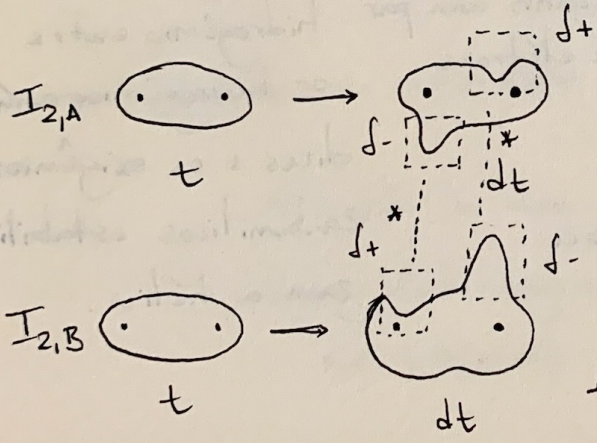 δ+
I2,A
δ-
*
t
dt
*
δ+
δ-
I2,B
t
dt